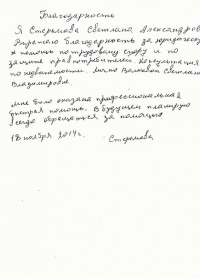 Благодарность
Я Стерхова Светлана Александров
Выражаю благодарность за юридическ
помощь по трудовому спору и по
защите прав потребителей. Консультация
по недвижимости.
Владимировне.
Мне была оказана профессиональная
быстрая помощь. В будущем планирую
всегда обращаться за помощью
18 ноября 2014г.